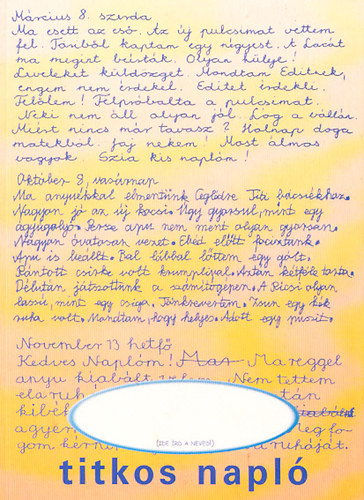 Március 8. szerda
Ma esett az eső. Az új pulcsimat vettem
fel. Toniból kaptam egy négyest. A Lacát
ma megint beírták. Olyan hülye!
Leveleket küldözget. Mondtam Editnek,
engem nem érdekel. Editet érdekli.
Felőlem! Felpróbálta a pulcsimat.
Neki nem áll olyan jól. Lóg a vállán.
Miért nincs már tavasz? Holnap doga
matekból. Jaj nekem! Most álmos
vagyok. Szia kis naplóm!
Október 8, vasárnap
Ma anyuékkal elmentünk Ceglédre Titi bácsiékhoz.
Nagyon jó az új kocsi. Úgy gyorsul, mint egy
ágyúgolyó. Persze apu nem ment olyan gyorsan.
Nagyon óvatosan vezet. Ebéd előtt fociztunk.
Apu is beállt. Bal lábbal lőttem egy gólt.
Rántott csirke volt krumplival. Aztán kétféle torta.
Délután játszottunk a számítógépen. A Picsi olyan
lassú, mint egy csiga. Tönkrevertem. Zsun egy kék
ruha volt. Mondtam, hogy helyes. Adott egy puszit.
November 13 hetfő
Kedves Naplóm! Mar Mareggel
anyu kiabált velem. Nem tettem
el a ruh tán
kibék
agyem meg fo-
gom kérni ruháját.
(IDE ÍRD A NEVED!)
titkos napló